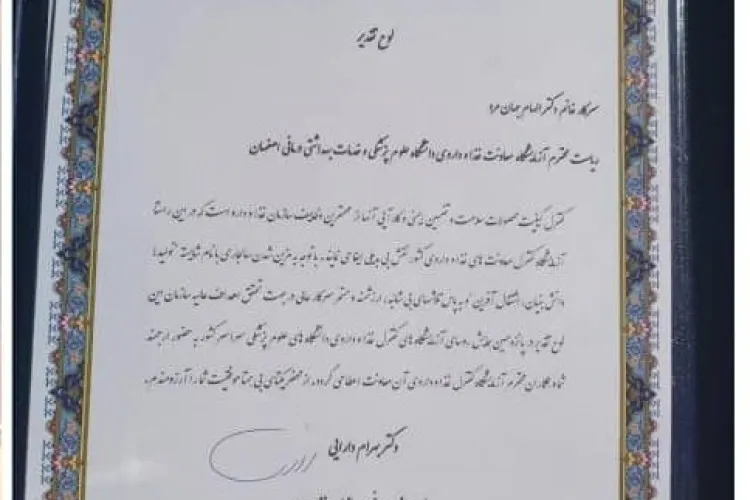 لوح تقدیر
سرکار خانم دکتر الهام جهان مرد
ریاست محترم آزمایشگاه معاونت غذا و داروی دانشگاه علوم پزشکی و خدمات بهداشتی درمانی اصفهان
کنترل کیفیت محصولات سلامت و تضمین ایمنی و کارآیی آنها از مهمترین وظایف سازمان غذا و دارو است که در این راستا
آزمایشگاه کنترل معاونت های غذا و داروی کشور نقش بی بدیلی ایفا می نمایند. با توجه به مزین شدن سال جاری با نام شایسته "تولید؛
دانش بنیان، اشتغال آفرین" به پاس تلاشهای بی شائبه، ارزشمند و مستمر سرکار عالی در جهت تحقق اهداف عالیه سازمان این
لوح تقدیر در پانزدهمین همایش روسای آزمایشگاه های کنترل غذا و داروی دانشگاه های علوم پزشکی سراسر کشور به حضور ارجمند
شما و همکاران محترم آزمایشگاه کنترل غذا و داروی آن معاونت اعطا می گردد. از محضر یکتای بی همتا موفقیت شما را آرزومندم.
دکتر بهرام دارایی